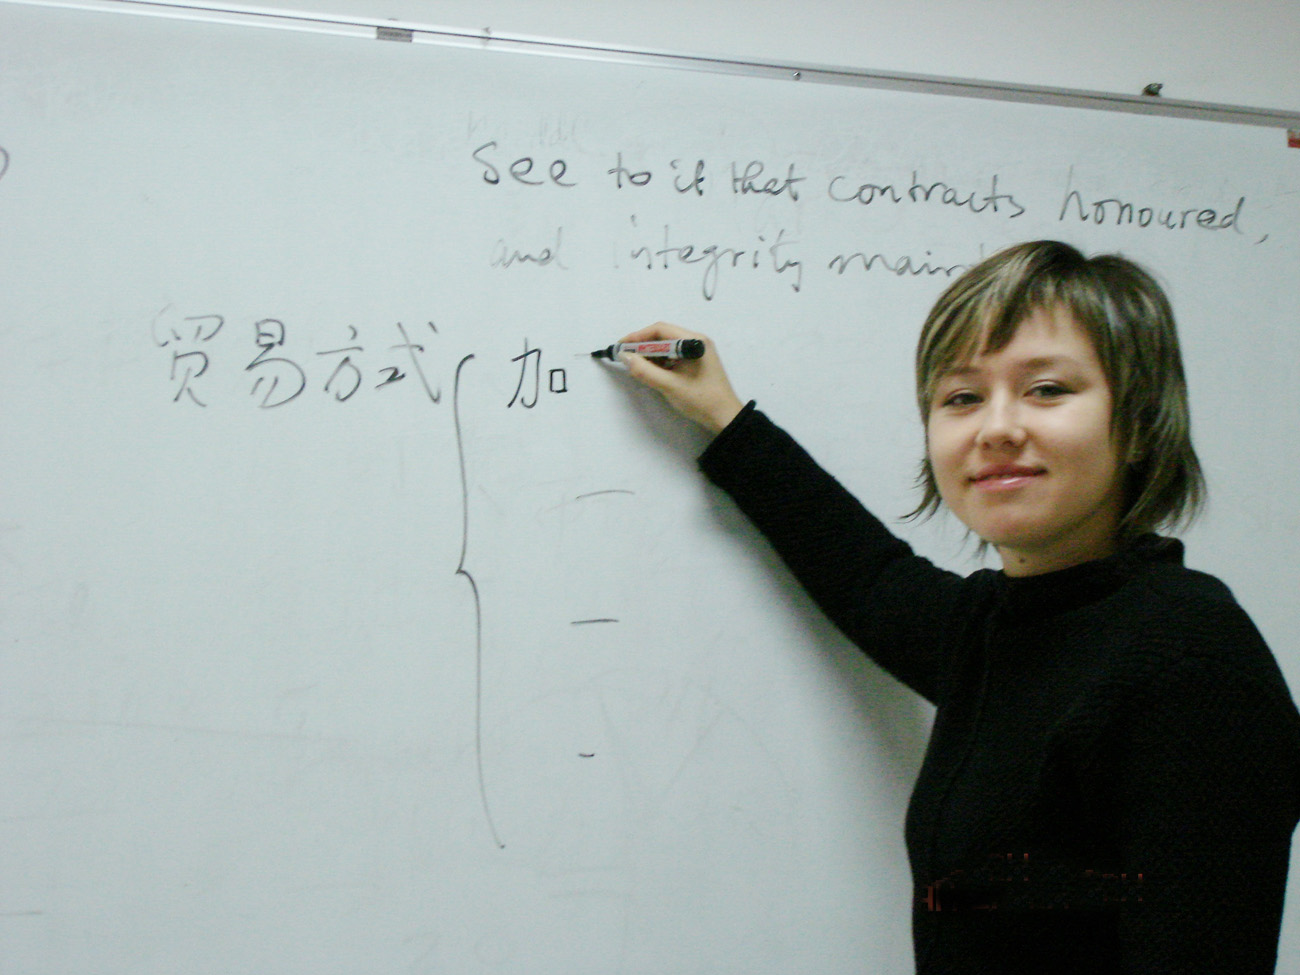 See to it that contracts honoured,
and integrity
贸易方式 { 加